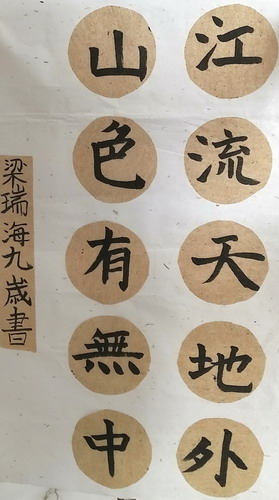 江流天地外
山色有無中
梁瑞海九歲書